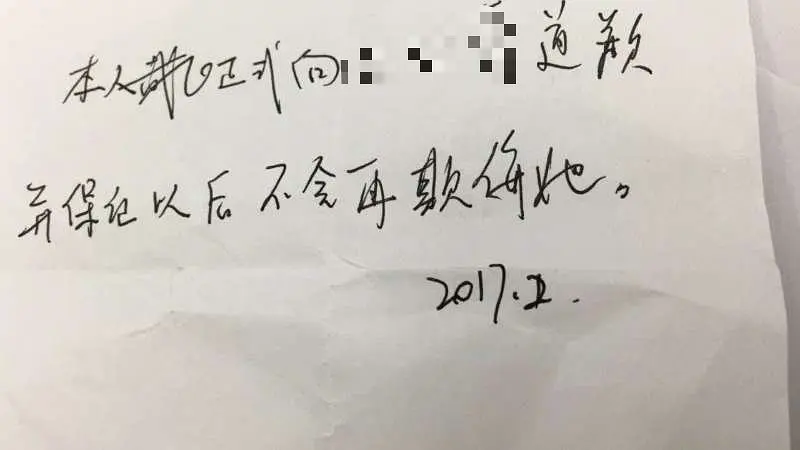 本人正式向道歉
并保证以后不会再欺侮她。
2017.